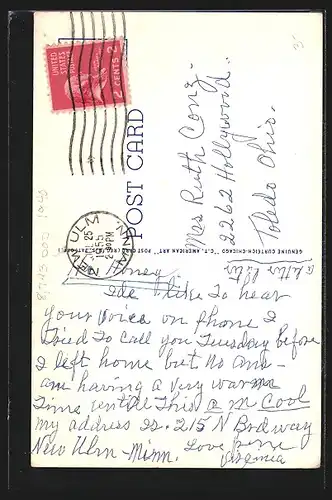 UNITED STATES POSTAGE
2 CENTS 2
NEW ULM MINN.
25
1955
2 30 PM
POST CARD
GENUINE CURTEICH-CHICAGO "C.T. AMERICAN ART" POST CARD (REG. U.S. PAT. OFF.)
Mrs Ruth Conz.
2262 Hollywood.
Toledo Ohio.
a letter later
Honey
Ide like to hear
your voice on phone I
tried to call you Tuesday before
I left home but no ans-
am having a very warm
time untill this a m cool
my address is. 215 N Brdway
New Ulm - Minn. Love
Virginia